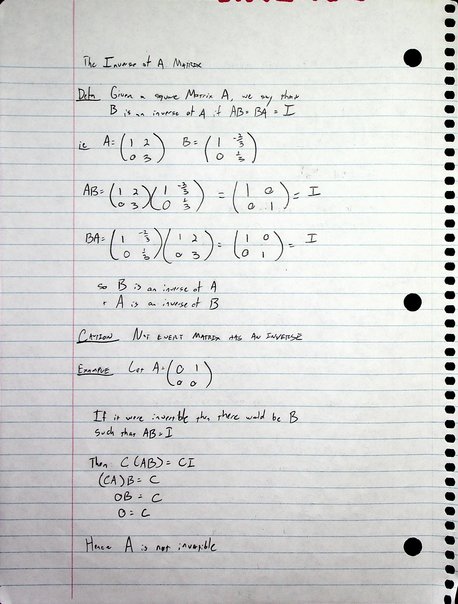 The Inverse of A Matrix
Defn Given a square Matrix A, we say that
B is an inverse of A if AB = BA = I
ie A = (1 2; 0 3) B = (1 -2/3; 0 1/3)
AB = (1 2; 0 3)(1 -2/3; 0 1/3) = (1 0; 0 1) = I
BA = (1 -2/3; 0 1/3)(1 2; 0 3) = (1 0; 0 1) = I
so B is an inverse of A
+ A is an inverse of B
Cation Not every matrix has an inverse
Example Let A = (0 1; 0 0)
If it were invertible then there would be B
such that AB = I
Then C(AB) = CI
(CA)B = C
0B = C
0 = C
Hence A is not invertible